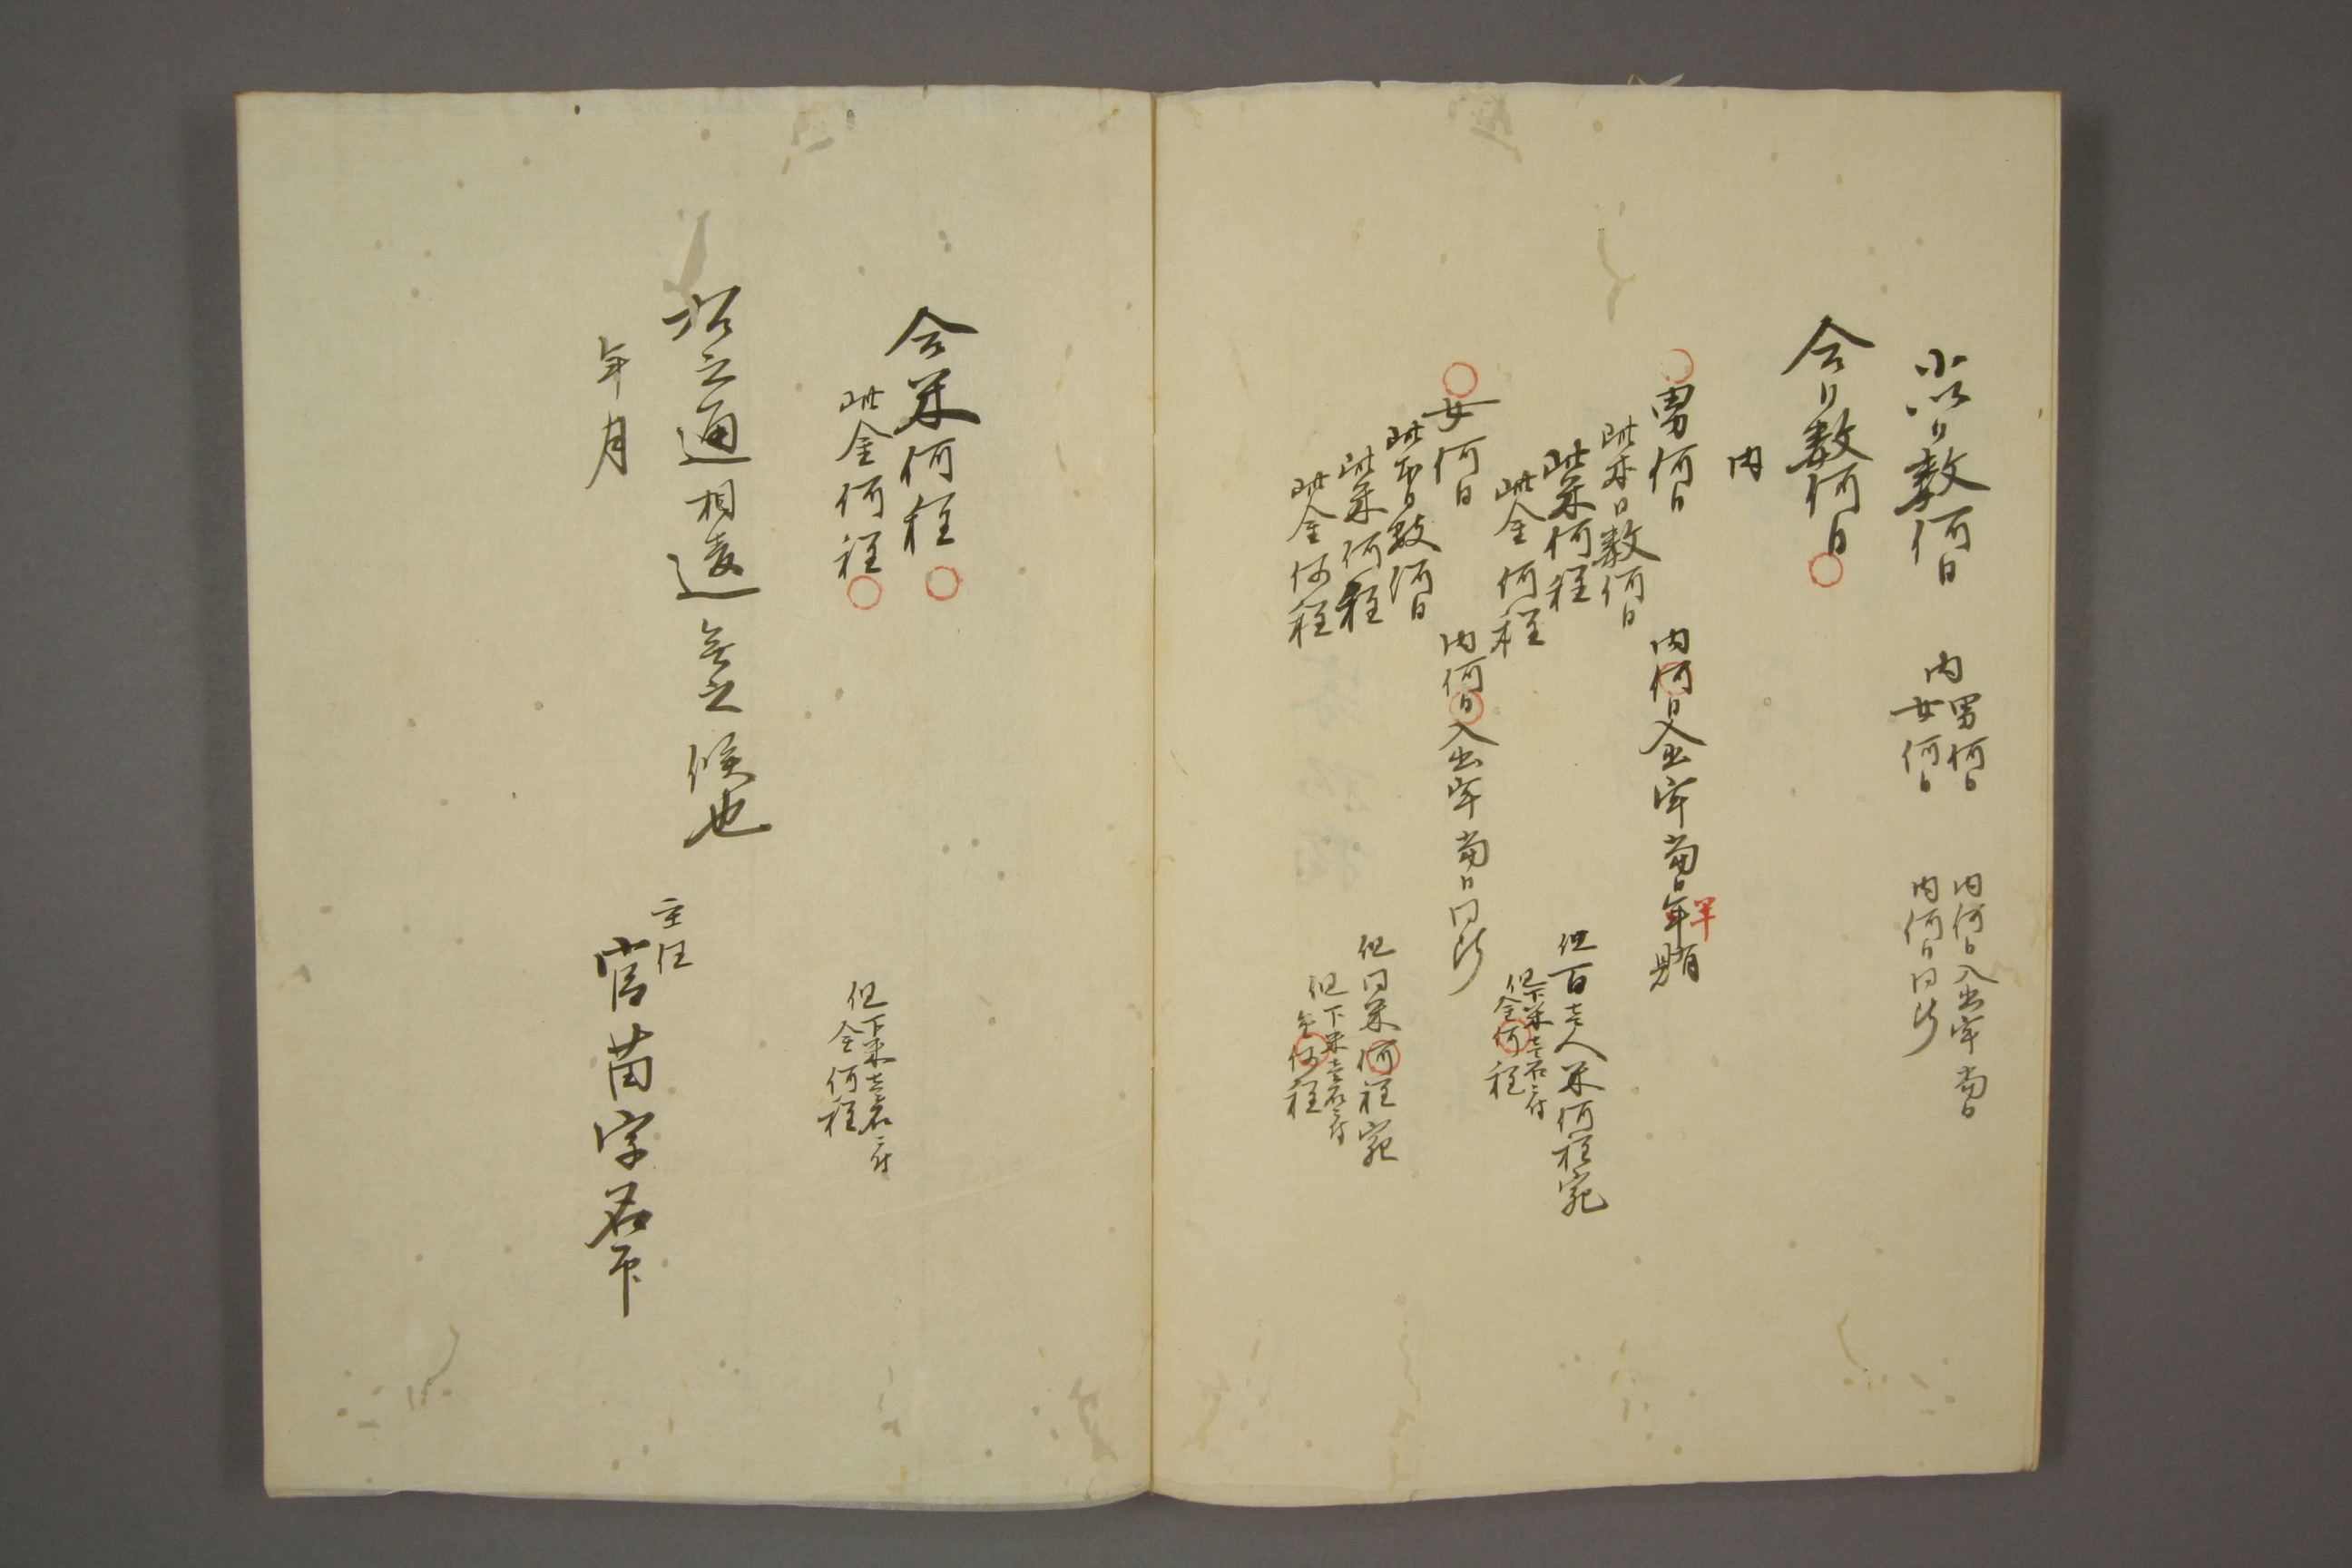 小以日数何日
内
男何日
女何日
内何日入出牢当日
内何日同断
合日数何日
内
男何日
内何日入出牢当日年賄
半
此本日数何日
此米何程
但百壱人米何程宛
此金何程
但下米壱石ニ付
金何程
女何日
内何日入出牢当日同断
此本日数何日
此米何程
但同米何程宛
此金何程
但下米壱石ニ付
金何程
合米何程
此金何程
但下米壱石ニ付
金何程
右之通相違無之候也
年月
主任
官苗字名印